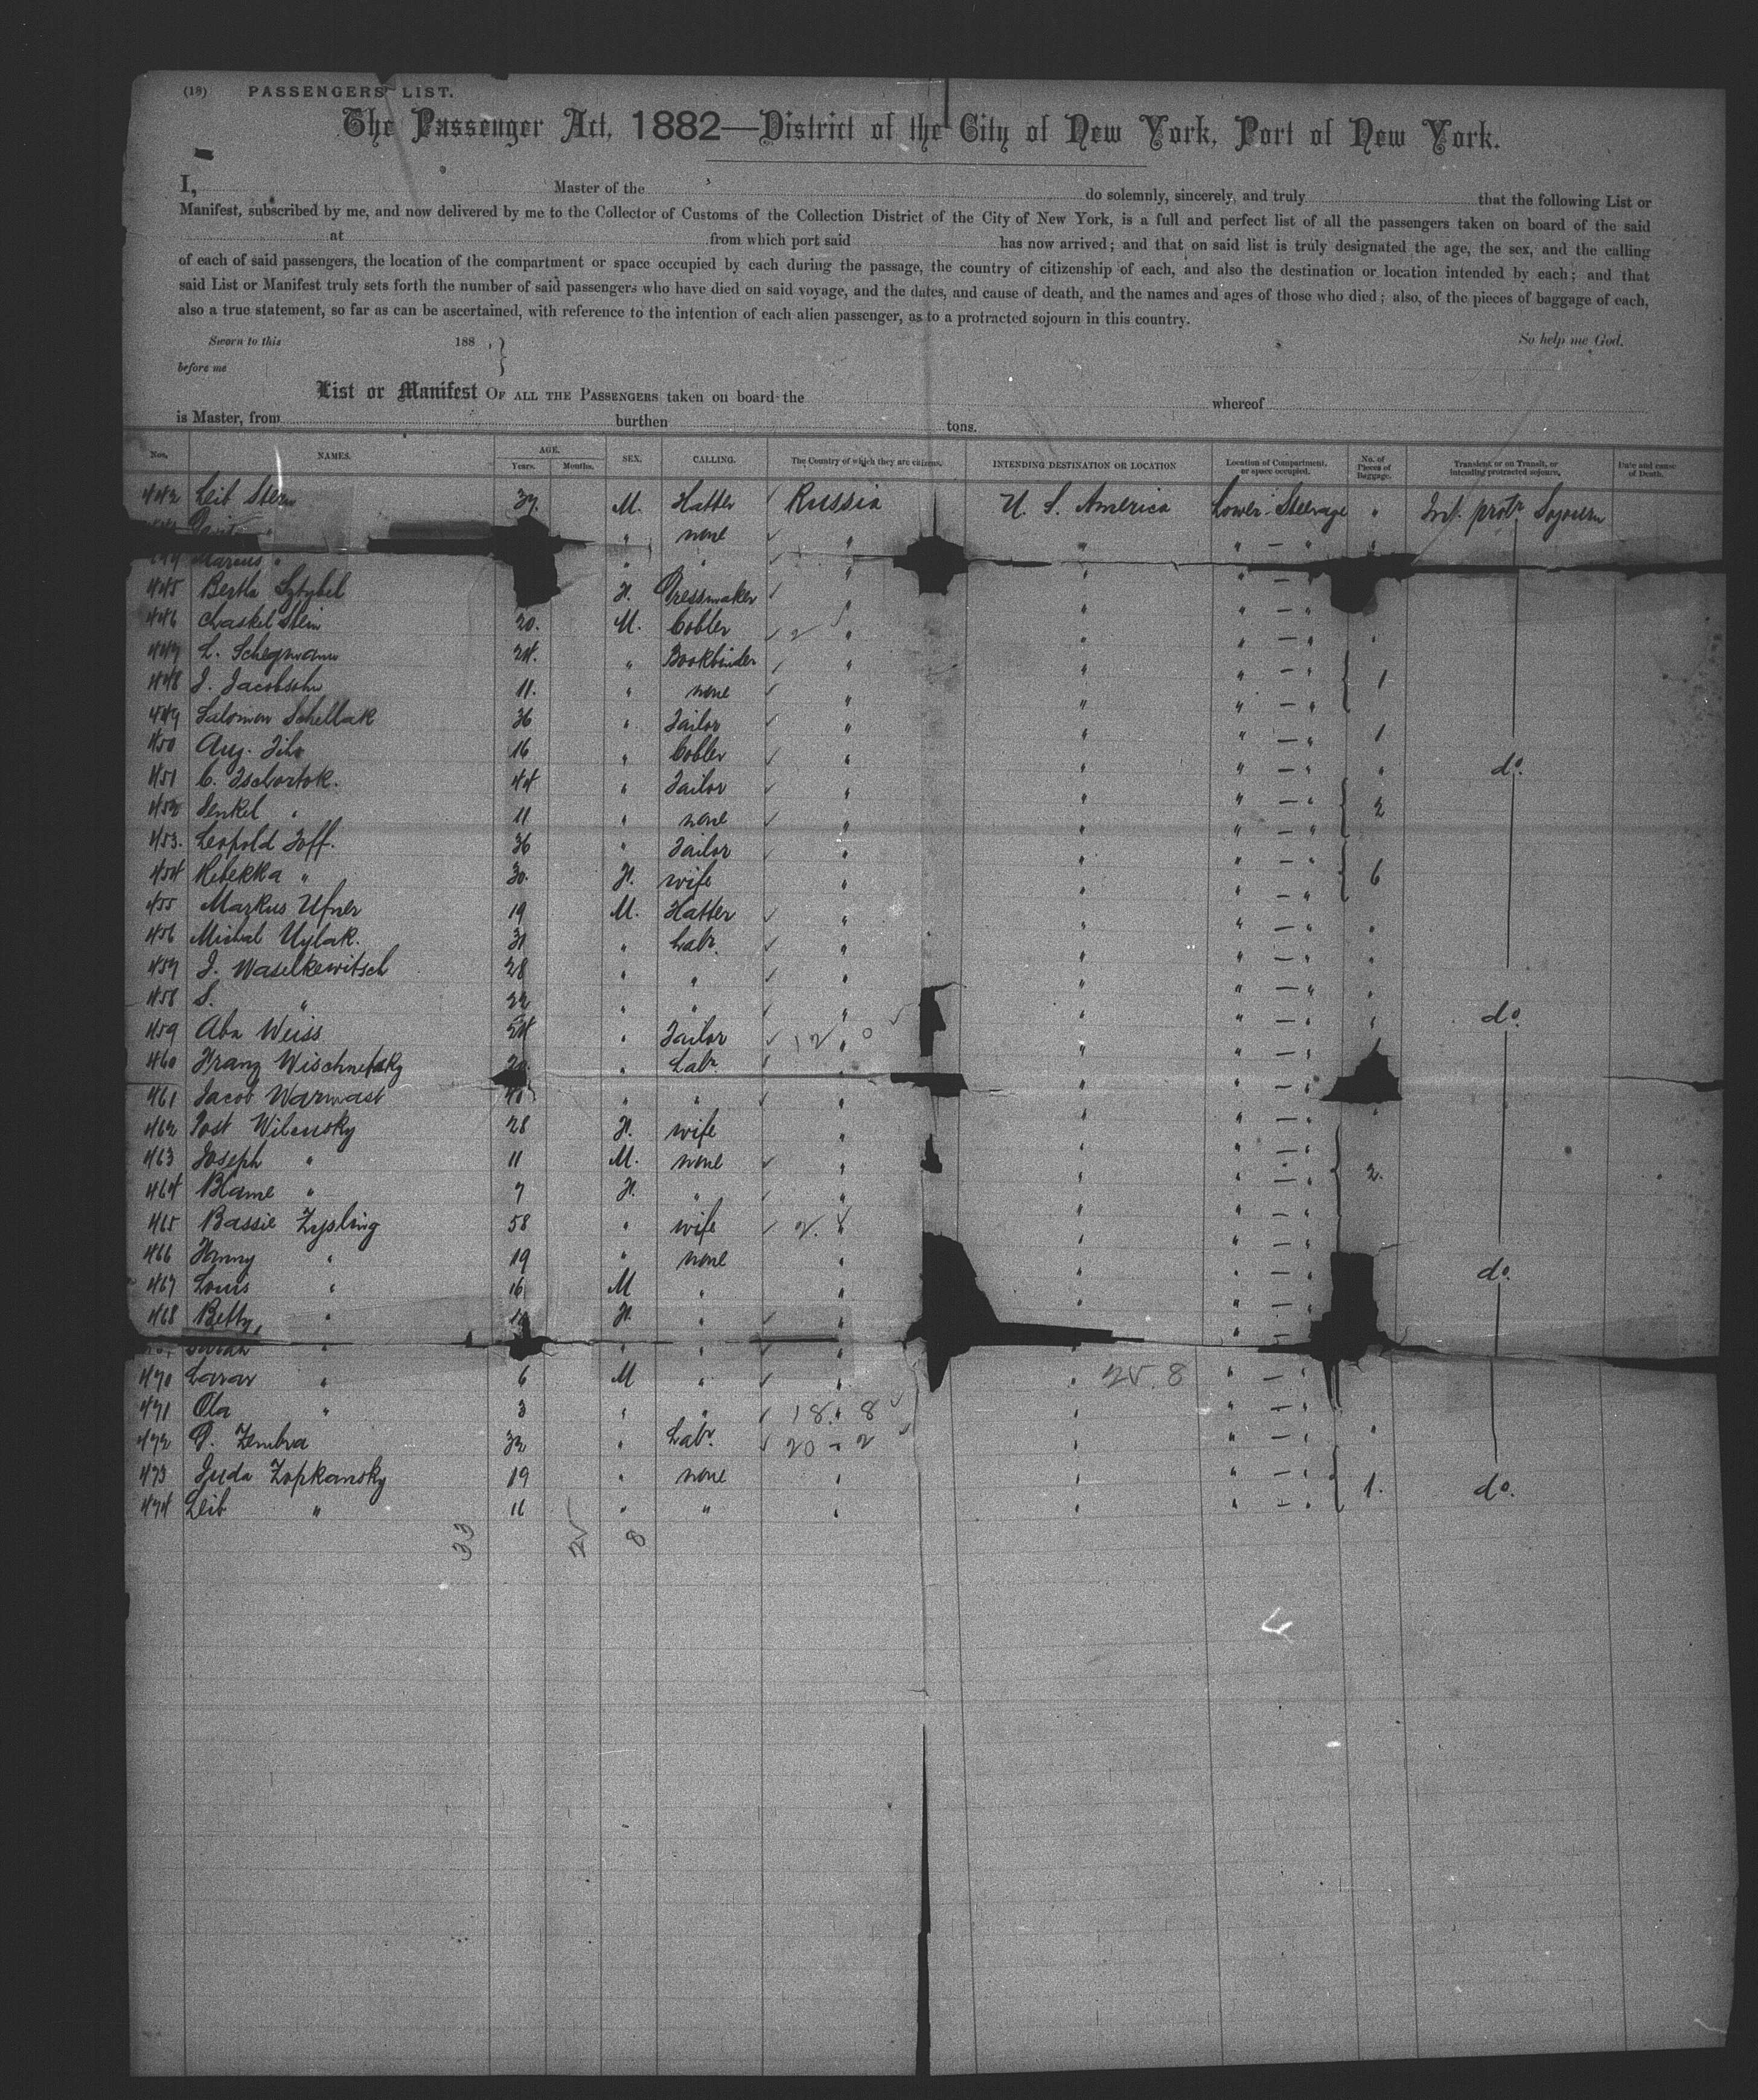 (18) PASSENGERS' LIST.
The Passenger Act, 1882—District of the City of New York, Port of New York.
I, Master of the do solemnly, sincerely, and truly that the following List or
Manifest, subscribed by me, and now delivered by me to the Collector of Customs of the Collection District of the City of New York, is a full and perfect list of all the passengers taken on board of the said
at from which port said has now arrived; and that on said list is truly designated the age, the sex, and the calling
of each of said passengers, the location of the compartment or space occupied by each during the passage, the country of citizenship of each, and also the destination or location intended by each; and that
said List or Manifest truly sets forth the number of said passengers who have died on said voyage, and the dates, and cause of death, and the names and ages of those who died; also, of the pieces of baggage of each,
also a true statement, so far as can be ascertained, with reference to the intention of each alien passenger, as to a protracted sojourn in this country.
Sworn to this 188 , } So help me God.
before me
List or Manifest OF ALL THE PASSENGERS taken on board the whereof
is Master, from burthen tons.
Nos. NAMES. AGE. Years. Months. SEX. CALLING. The Country of which they are citizens. INTENDING DESTINATION OR LOCATION Location of Compartment, or space occupied. No. of Pieces of Baggage. Transient, or on Transit, or intending protracted sojourn. Date and cause of Death.
442 Leib Stern 37. M. Hatter Russia U. S. America Lower Steerage " Int. protr. Sojourn
" none " " " — "
444 Marcus " " " " " " — "
445 Bertha Sztybel F. Dressmaker " " " — "
446 Chaskel Stein 20. M. Cobler " " " — " "
447 L. Schegmann 24. " Bookbinder " " " — "
448 J. Jacobsohn 11. " none " " " — " 1
449 Salomon Schellak 36 " Tailor " " " — " 1
450 Aug. 16 " Cobler " " " — " " do.
451 C. Tschortok. 44 " Tailor " " " — "
452 Senkel " 11 " none " " " — " 2
453. Leopold Joff. 36 " Tailor " " " — "
454 Rebekka " 30. F. wife " " " — " 6
455 Markus Ufner 19 M. Hatter " " " — " "
456 Michal Uylak. 31 " Labr. " " " — " "
457 J. Waselkewitsch 28 " " " " " — " "
458 S. " 22 " " " " " — " " do.
459 Aba Weiss 54 " Tailor " " " — "
460 Franz Wischnefsky 20. " Labr. " " " — "
461 Jacob Warmast 40 " " " " " — " "
462 Post Wilensky 28 F. wife " " " — "
463 Joseph " 11 M. none " " " — " 2.
464 Blame " 7 F. " " " " — "
465 Bassie Zysling 58 " wife " " " — "
466 Fanny " 19 " none " " " — " do.
467 Louis " 16 M " " " " — "
468 Betty " F. " " " " —
Sarah " " " " "
470 " 6 M " " " 25.8 " — "
471 Ola " 3 " " 18 " 8 " " — "
472 O. Zembra 32 " Labr. 20 - 2 " " — " "
473 Juda Zopkansky 19 " none " " " — " 1. do.
474 Leib " 11 " " " " " — "
33 25 8